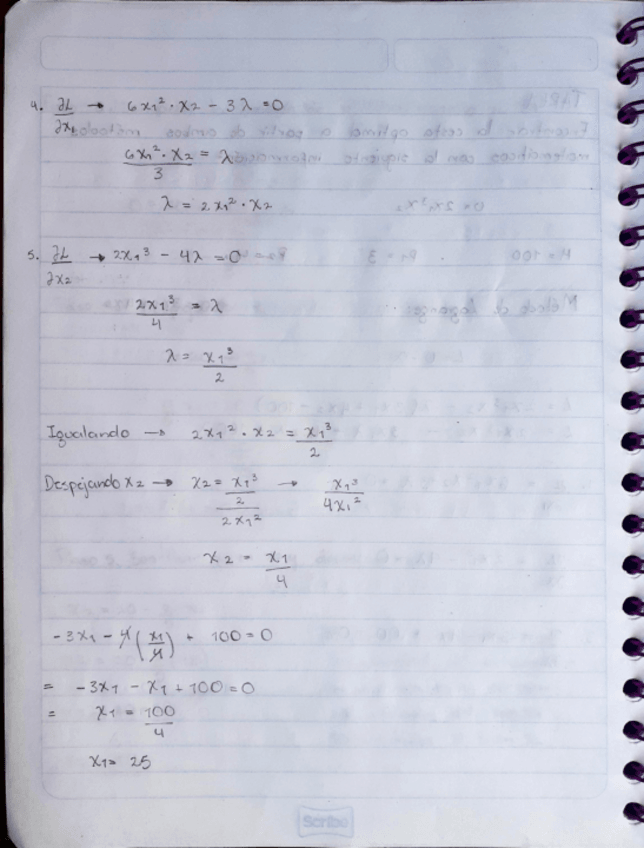 4. ∂L/∂x₁ → 6x₁² · x₂ - 3λ = 0
6x₁² · x₂ / 3 = λ
λ = 2x₁² · x₂
5. ∂L/∂x₂ → 2x₁³ - 4λ = 0
2x₁³ / 4 = λ
λ = x₁³ / 2
Igualando → 2x₁² · x₂ = x₁³ / 2
Despejando x₂ → x₂ = (x₁³ / 2) / 2x₁² → x₁³ / 4x₁²
x₂ = x₁ / 4
-3x₁ - 4(x₁/4) + 100 = 0
= -3x₁ - x₁ + 100 = 0
= x₁ = 100 / 4
x₁ = 25
Scribe